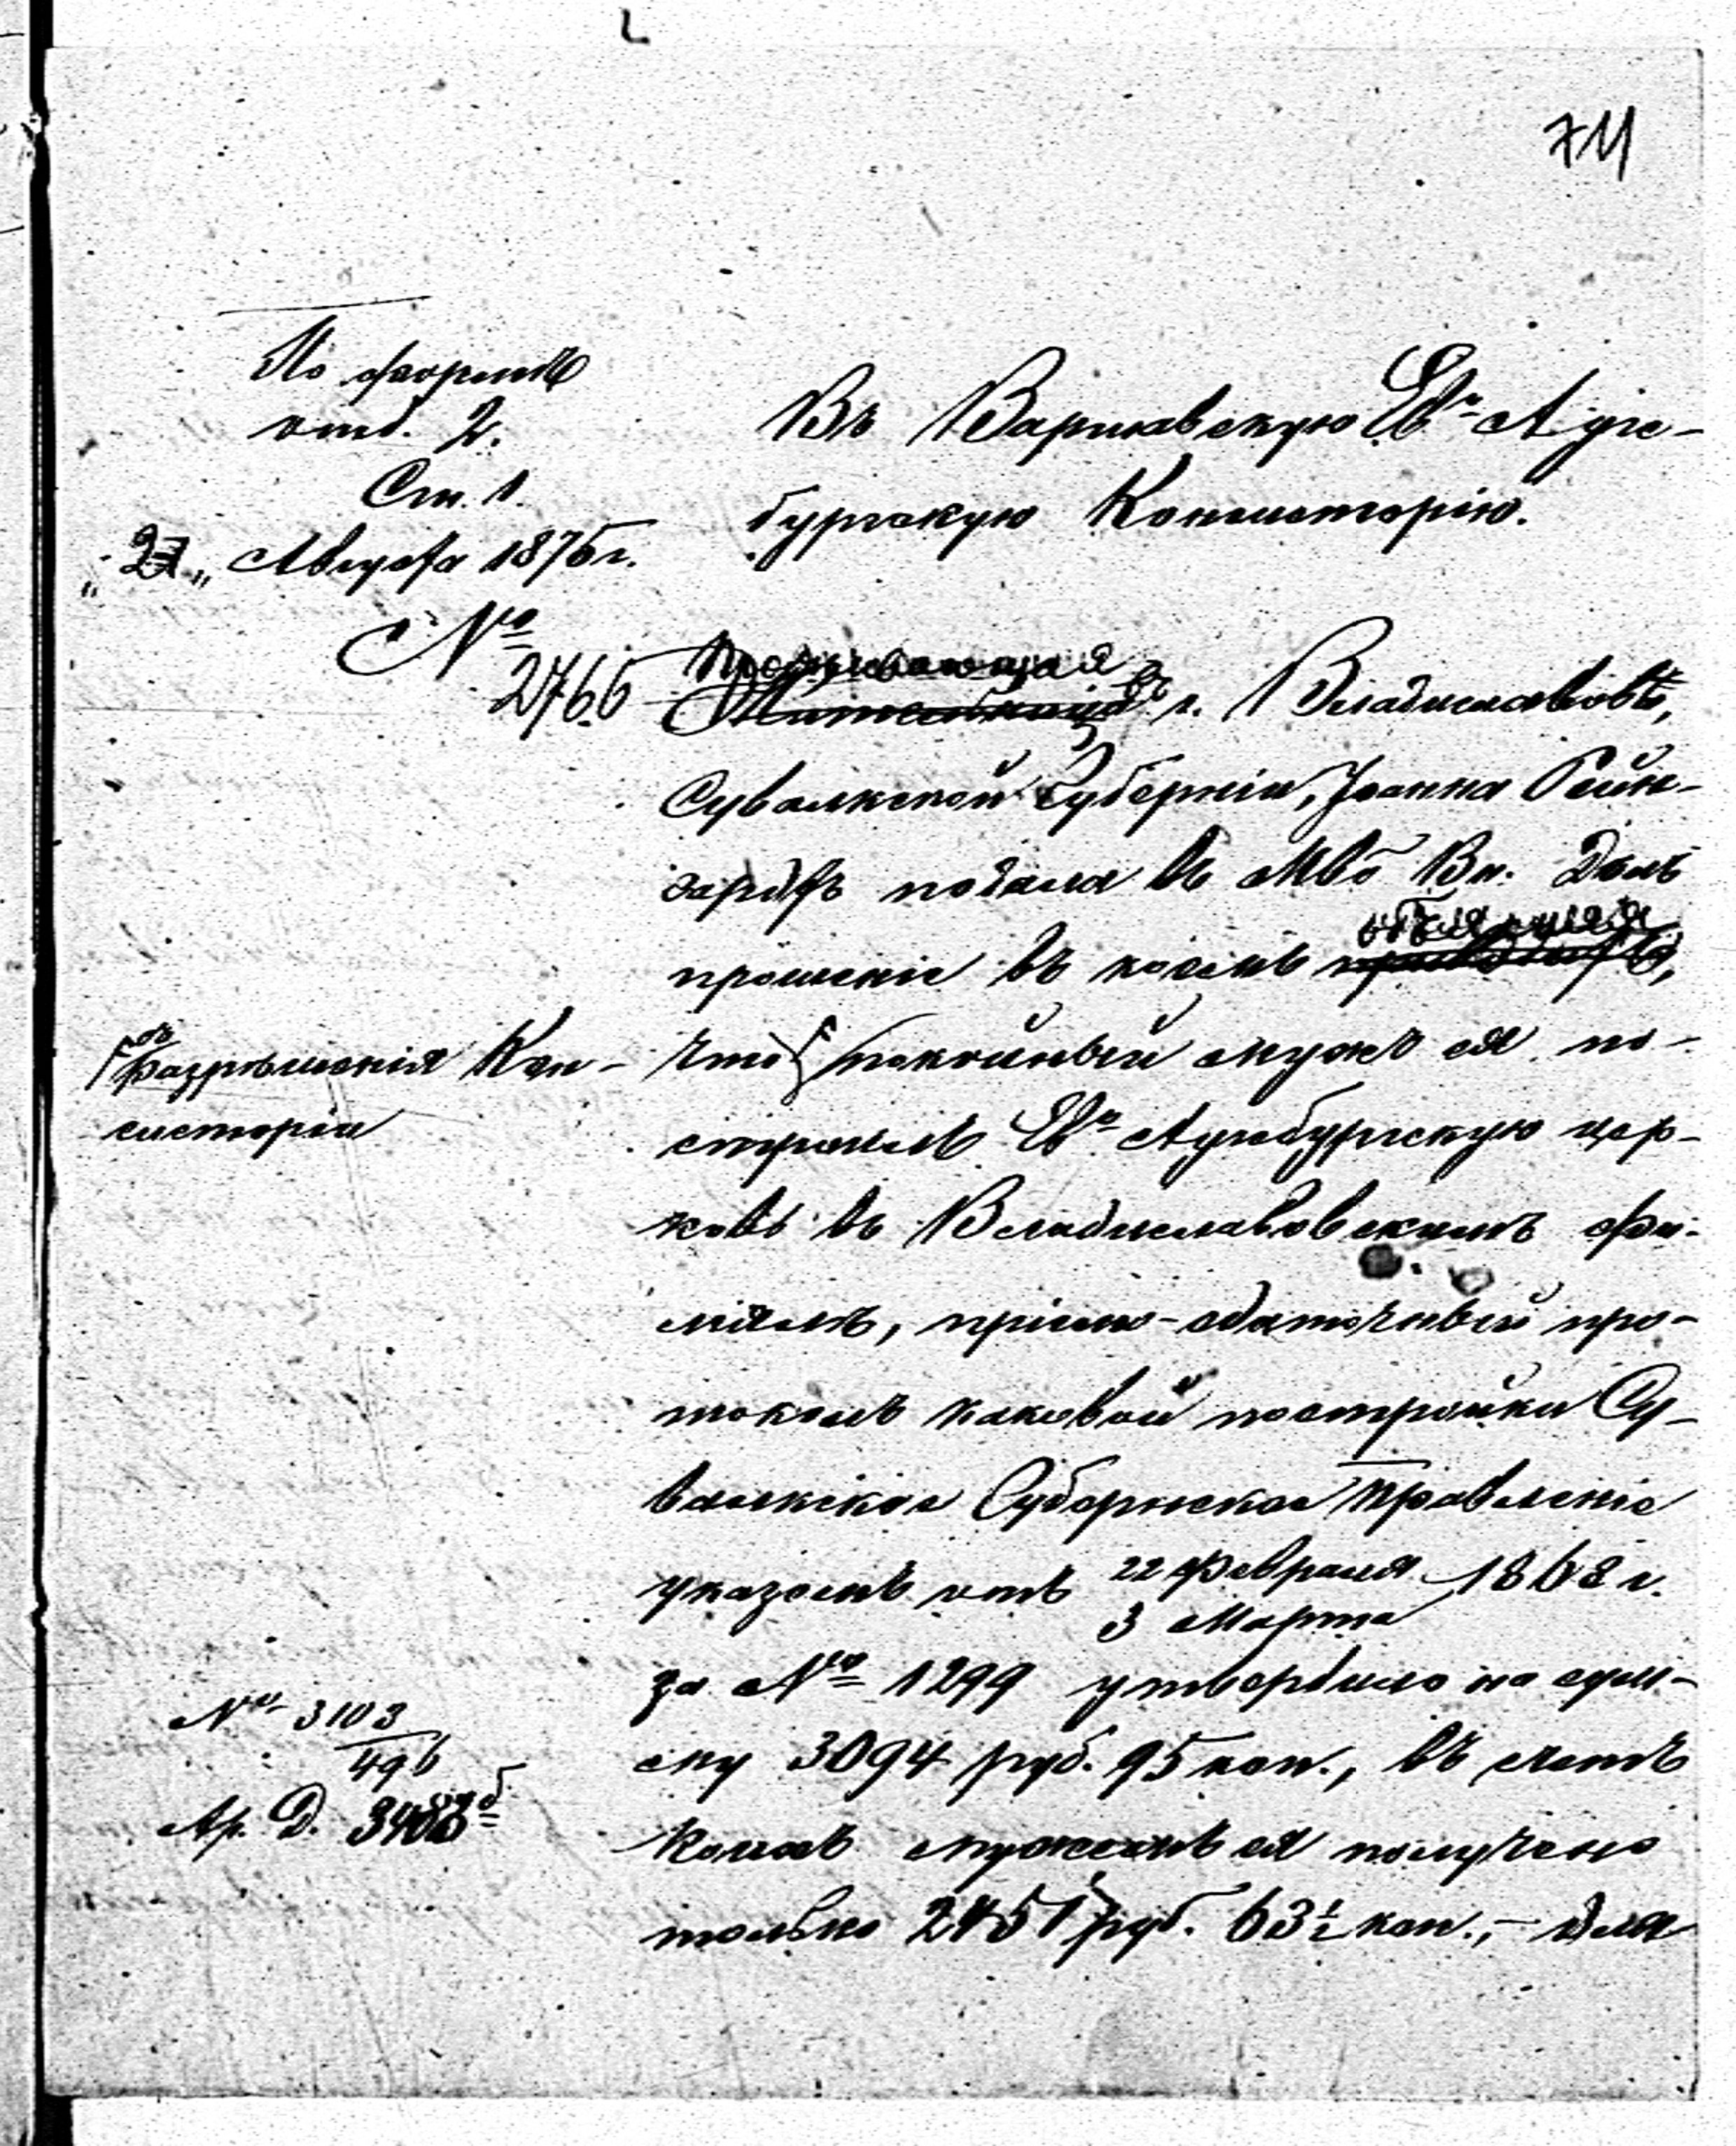 711
По формѣ
отд. 2.
Ст. 1.
" 27 " Августа 1875 г.
№ 2766
Въ Варшавскую Ев.-Аугс-
бургскую Консисторію.
Проживающая въ г. Владиславовѣ,
Сувалкской Губерніи, Іоанна Рейн-
гардтъ подала въ М-во Вн. Дѣлъ
прошеніе въ коемъ объясняя,
что покойный мужъ ея по-
съ разрѣшенія Кон-
систоріи
строилъ Ев. Аугсбургскую цер-
ковь въ Владиславовскомъ фи-
ліалѣ, пріемо-сдаточный про-
токолъ каковой постройки Су-
валкское Губернское Правленіе
указомъ отъ 22 Февраля 1868 г.
3 Марта
за № 1299 утвердило на сум-
му 3094 руб. 95 коп., въ счетъ
коихъ мужемъ ея получено
только 2451 руб. 63 ½ коп., – для
№ 3103
496
Ар. Д.